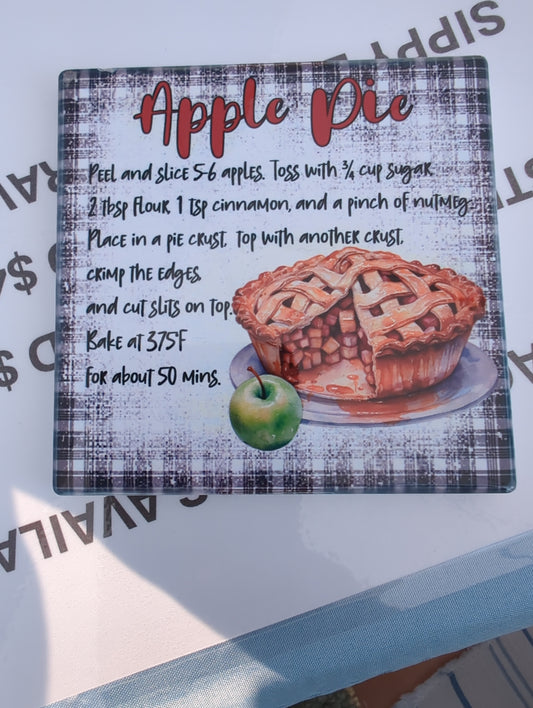 Apple Pie
Peel and slice 5-6 apples. Toss with ¾ cup sugar,
2 tbsp flour, 1 tsp cinnamon, and a pinch of nutmeg.
Place in a pie crust, top with another crust,
crimp the edges,
and cut slits on top.
Bake at 375°F
for about 50 mins.
SIPPY